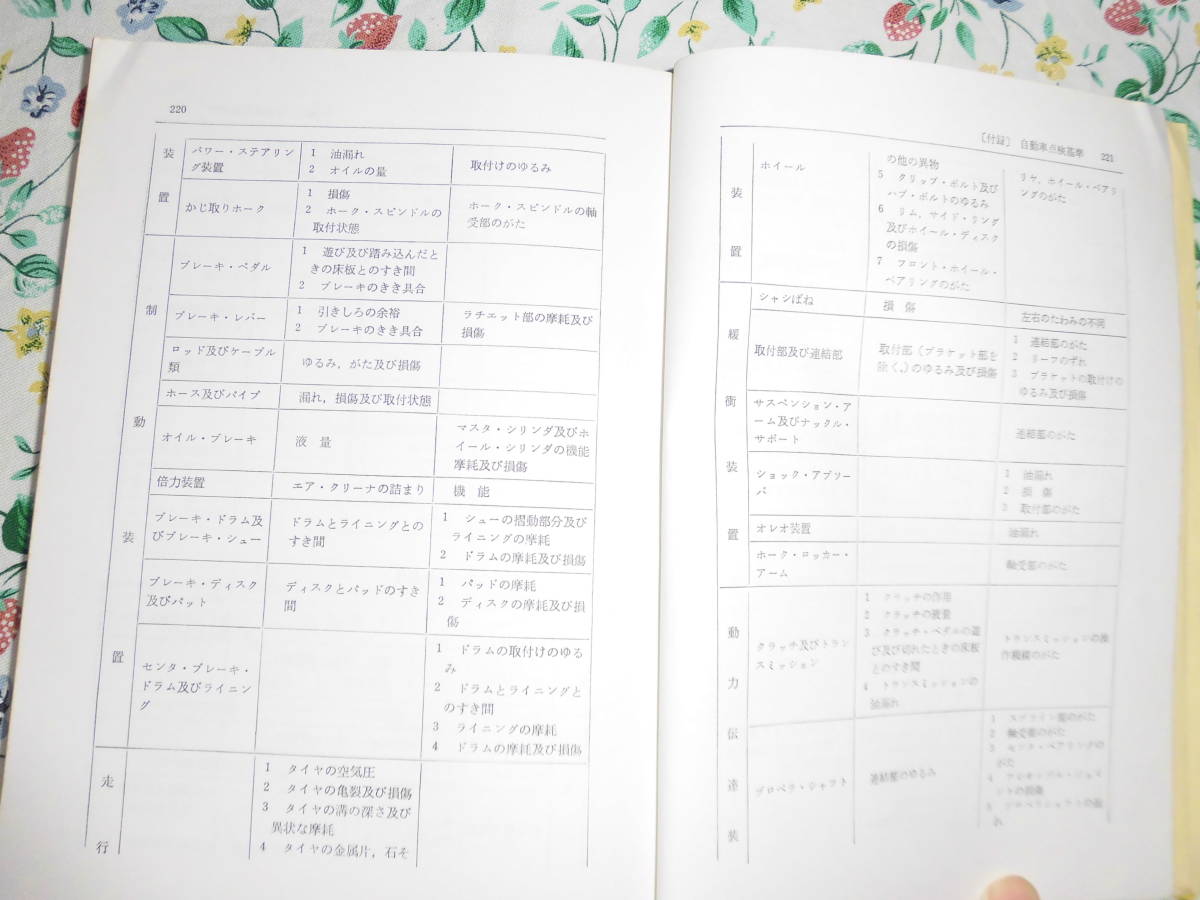 220
装
置
パワー・ステアリン
グ装置
1 油漏れ
2 オイルの量
取付けのゆるみ
かじ取りホーク
1 損傷
2 ホーク・スピンドルの
取付状態
ホーク・スピンドルの軸
受部のがた
制
動
装
置
ブレーキ・ペダル
1 遊び及び踏み込んだと
きの床板とのすき間
2 ブレーキのきき具合
ブレーキ・レバー
1 引きしろの余裕
2 ブレーキのきき具合
ラチエット部の摩耗及び
損傷
ロッド及びケーブル
類
ゆるみ,がた及び損傷
ホース及びパイプ
漏れ,損傷及び取付状態
オイル・ブレーキ
液 量
マスタ・シリンダ及びホ
イール・シリンダの機能
摩耗及び損傷
倍力装置
エア・クリーナの詰まり
機 能
ブレーキ・ドラム及
びブレーキ・シュー
ドラムとライニングとの
すき間
1 シューの摺動部分及び
ライニングの摩耗
2 ドラムの摩耗及び損傷
ブレーキ・ディスク
及びパット
ディスクとパッドのすき
間
1 パッドの摩耗
2 ディスクの摩耗及び損
傷
センタ・ブレーキ・
ドラム及びライニン
グ
1 ドラムの取付けのゆる
み
2 ドラムとライニングと
のすき間
3 ライニングの摩耗
4 ドラムの摩耗及び損傷
走
行
1 タイヤの空気圧
2 タイヤの亀裂及び損傷
3 タイヤの溝の深さ及び
異状な摩耗
4 タイヤの金属片,石そ
〔付録〕 自動車点検基準 221
装
置
ホイール
の他の異物
5 クリップ・ボルト及び
ハブ・ボルトのゆるみ
6 リム,サイド・リング
及びホイール・ディスク
の損傷
7 フロント・ホイール・
ベアリングのがた
リヤ,ホイール・ベアリ
ングのがた
緩
衝
装
置
シャシばね
損 傷
左右のたわみの不同
取付部及び連結部
取付部(ブラケット部を
除く。)のゆるみ及び損傷
1 連結部のがた
2 リーフのずれ
3 ブラケットの取付けの
ゆるみ及び損傷
サスペンション・ア
ーム及びナックル・
サポート
連結部のがた
ショック・アブソー
バ
1 油漏れ
2 損 傷
3 取付部のがた
オレオ装置
油漏れ
ホーク・ロッカー・
アーム
軸受部のがた
動
力
伝
達
装
クラッチ及びトラン
スミッション
1 クラッチの作用
2 クラッチの液量
3 クラッチ・ペダルの遊
び及び切れたときの床板
とのすき間
4 トランスミッションの
油漏れ
トランスミッションの操
作機構のがた
プロペラ・シャフト
連結部のゆるみ
1 スプライン部のがた
2 軸受部のがた
3 センタ・ベアリングの
がた